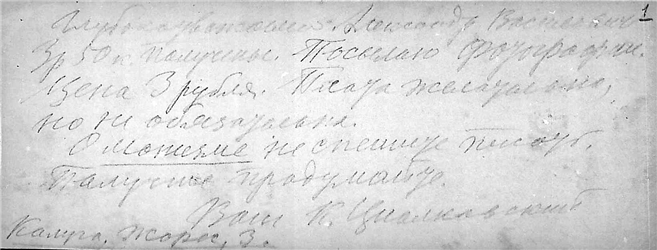 1
Глубокоуважаемый Александр Васильевич
3р 50 к получены. Посылаю фотографии.
Цена 3 рубля. Плата желательна,
но не обязательна.
не спешите писать,
получше продумайте.
Ваш К. Циолковский
Калуга, Жорес, 3.